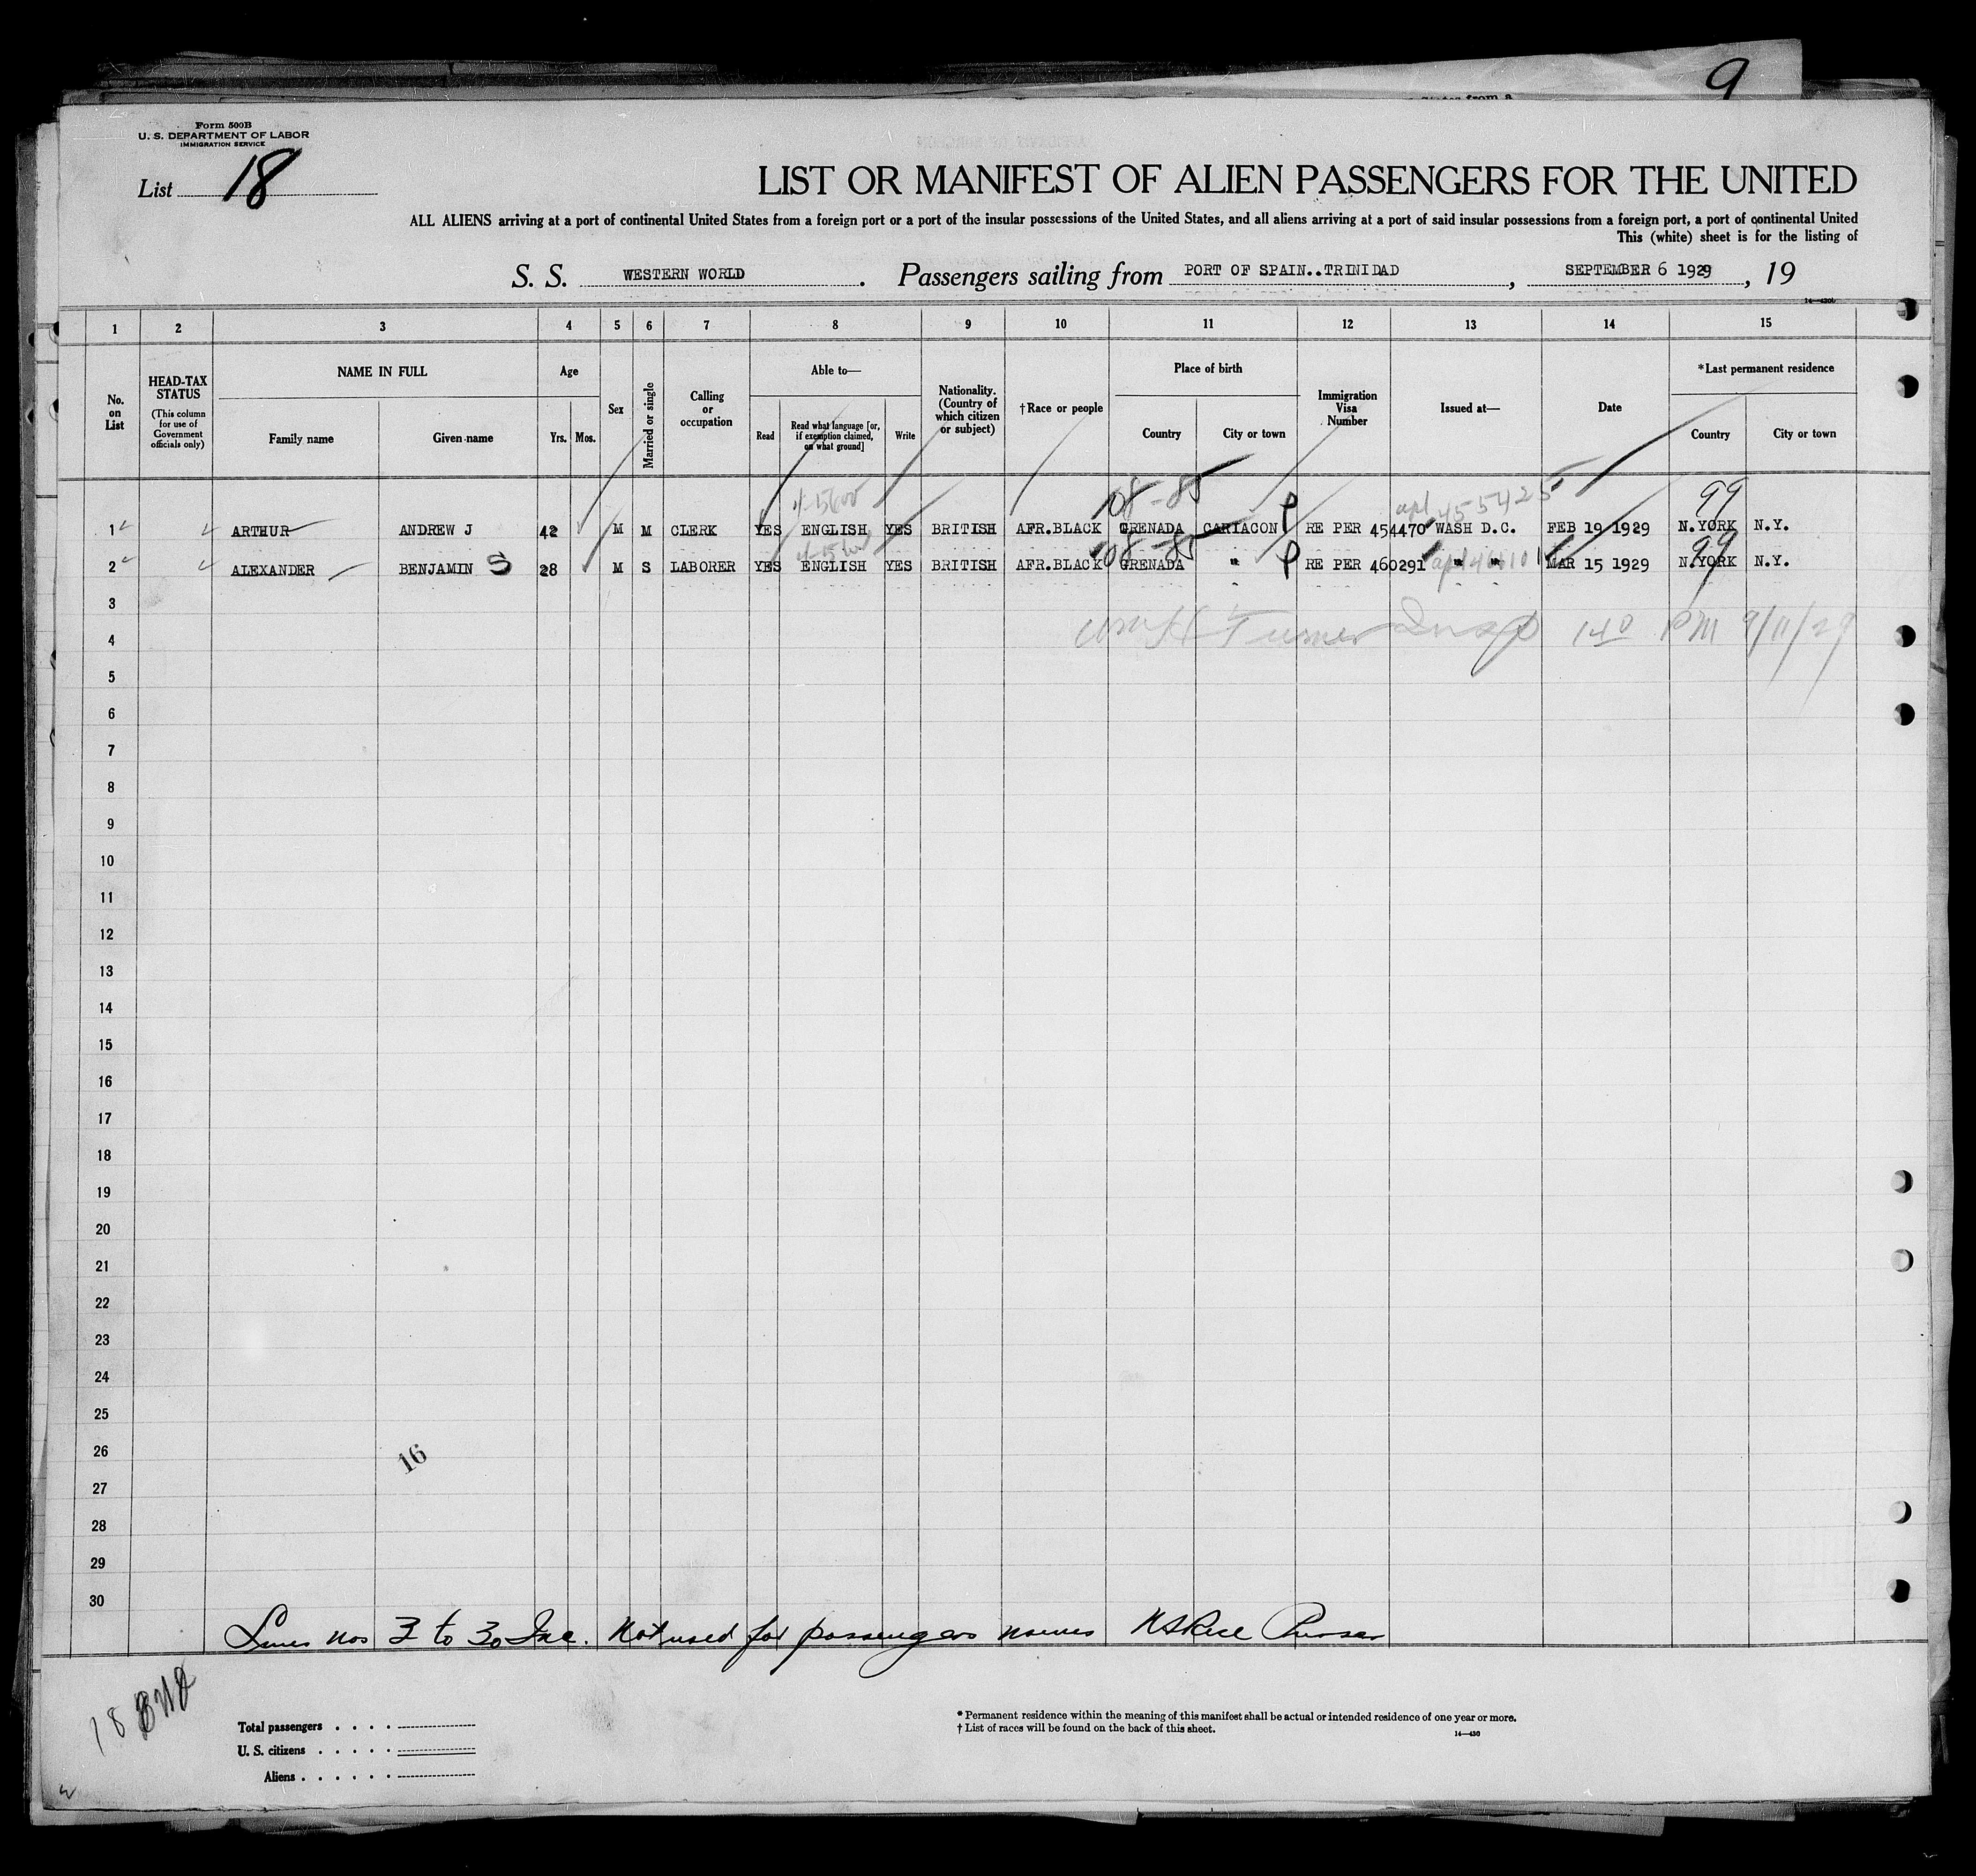 9
Form 500B
U. S. DEPARTMENT OF LABOR
IMMIGRATION SERVICE
List 18
LIST OR MANIFEST OF ALIEN PASSENGERS FOR THE UNITED
ALL ALIENS arriving at a port of continental United States from a foreign port or a port of the insular possessions of the United States, and all aliens arriving at a port of said insular possessions from a foreign port, a port of continental United
This (white) sheet is for the listing of
S. S. WESTERN WORLD. Passengers sailing from PORT OF SPAIN..TRINIDAD, SEPTEMBER 6 1929, 19
14—430b
1 2 3 4 5 6 7 8 9 10 11 12 13 14 15
No. on List
HEAD-TAX STATUS
(This column for use of Government officials only)
NAME IN FULL
Family name Given name
Age
Yrs. Mos.
Sex
Married or single
Calling or occupation
Able to—
Read Read what language [or, if exemption claimed, on what ground] Write
Nationality. (Country of which citizen or subject)
† Race or people
Place of birth
Country City or town
Immigration Visa Number
Issued at—
Date
*Last permanent residence
Country City or town
108-85 99
1 ARTHUR ANDREW J 42 M M CLERK YES ENGLISH YES BRITISH AFR.BLACK GRENADA CARIACON RE PER 454470 WASH D.C. FEB 19 1929 N.YORK N.Y.
108-85 99
2 ALEXANDER BENJAMIN S 28 M S LABORER YES ENGLISH YES BRITISH AFR.BLACK GRENADA " RE PER 460291 " " MAR 15 1929 N.YORK N.Y.
3
4 Turner Insp 140 PM 9/11/29
5
6
7
8
9
10
11
12
13
14
15
16
17
18
19
20
21
22
23
24
25
26
16
27
28
29
30
Lines nos 3 to 30 Inc. Not used for passengers names Purser
18
Total passengers
U. S. citizens
Aliens
* Permanent residence within the meaning of this manifest shall be actual or intended residence of one year or more.
† List of races will be found on the back of this sheet.
14—430